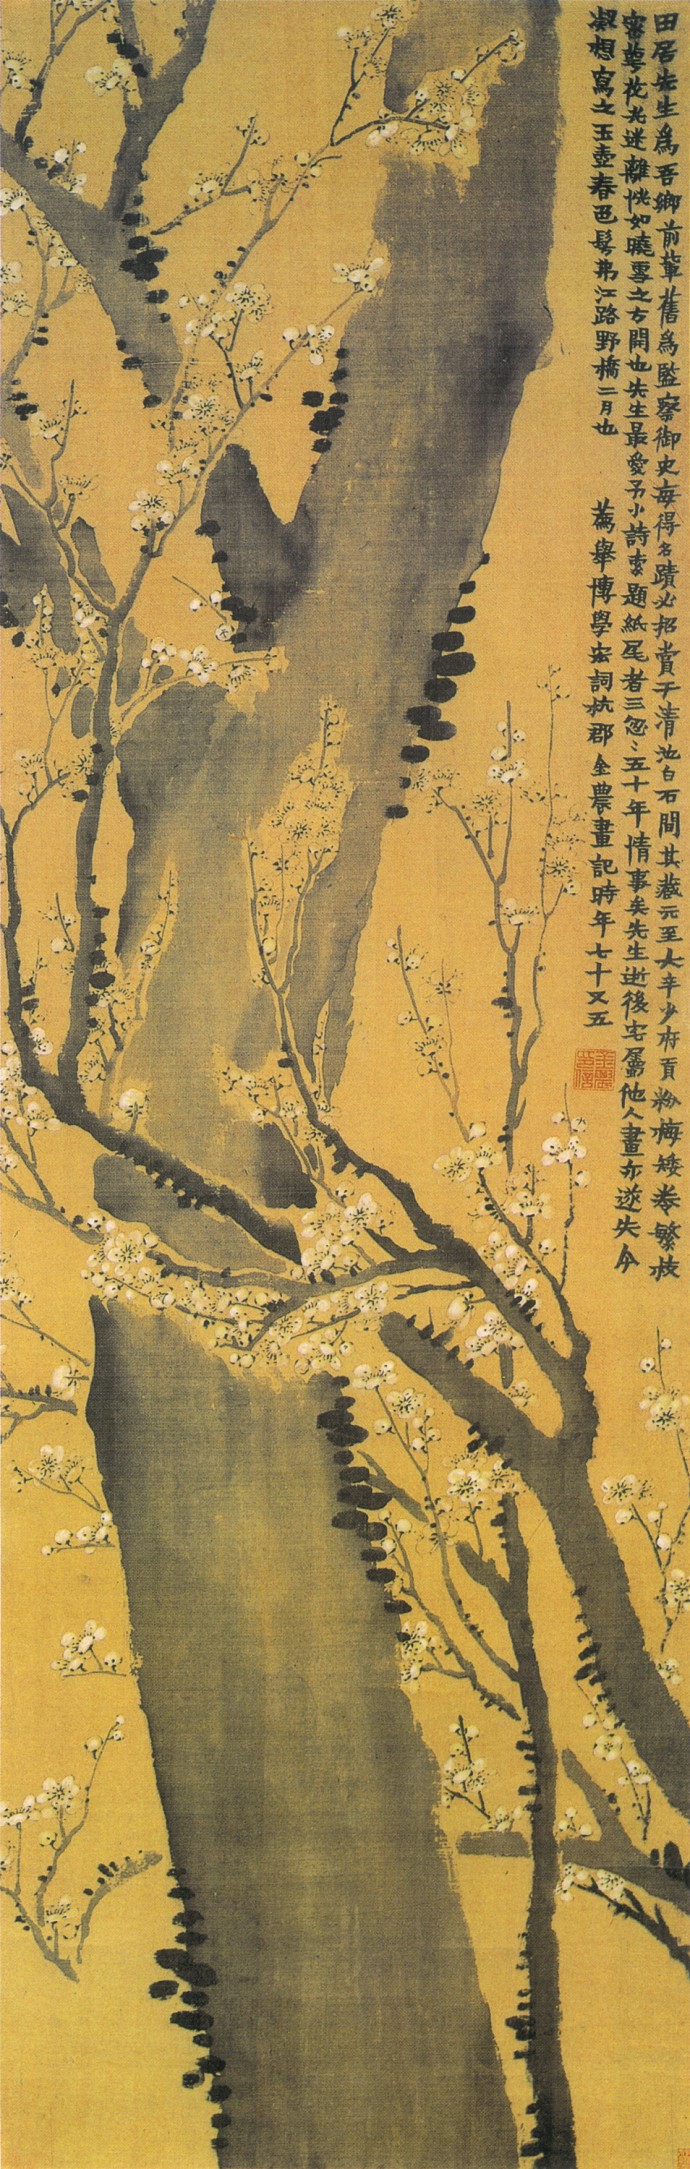 田居先生為吾鄉前輩舊為監察御史每得名蹟必招賞于清池白石間其藏元至大辛少府貢粉梅矮卷繁枝
密萼花光迷離恍如曉雪之方開也先生最愛予小詩索題紙尾者三忽〻五十年情事矣先生逝後宅屬他人畫亦遂失今
凝想寫之玉壺春色髣弗江路野橋二月也　薦舉博學宏詞杭郡金農畫記時年七十又五
金農印信